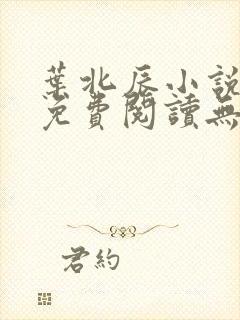 葉北辰小說
免費閱讀無
君約